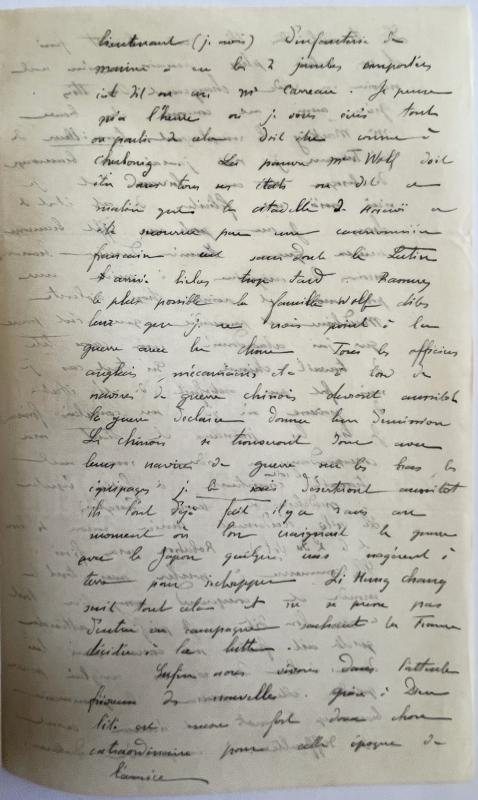 lieutenant (j. crois) d'infanterie de
marine a eu les 2 jambes emportées
est il ou un Mr Carreau. Je pense
qu'à l'heure où je vous écris toute
ou partie de cela doit être connue à
La pauvre Mme Wolf doit
être dans tous ses états on dit ce
matin que la citadelle de a
été par une canonnière
française c'est sans doute le Lutin
arrivé hélas trop tard. Rassurez
le plus possible la famille Wolf dites
leur que je ne crois point à la
guerre avec la Chine. Tous les officiers
anglais, mécaniciens etc à bord de
navires de guerre chinois devront aussitôt
la guerre déclarée donner leur démission
Les chinois se trouveront donc avec
leurs navires de guerre sur les bras, les
équipages je le sais déserteront aussitôt
ils l'ont déjà fait il y a 3 ans au
moment où l'on craignait la guerre
avec le Japon quelques uns nagèrent à
terre pour échapper. Li Hung Chang
sait tout cela et ne se presse pas
d'entrer en campagne sachant la France
décidée à la lutte.
Enfin nous vivons dans l'attente
fiévreuse de nouvelles grâce à Dieu
l'été est encore fort doux chose
extraordinaire pour cette époque de
l'année